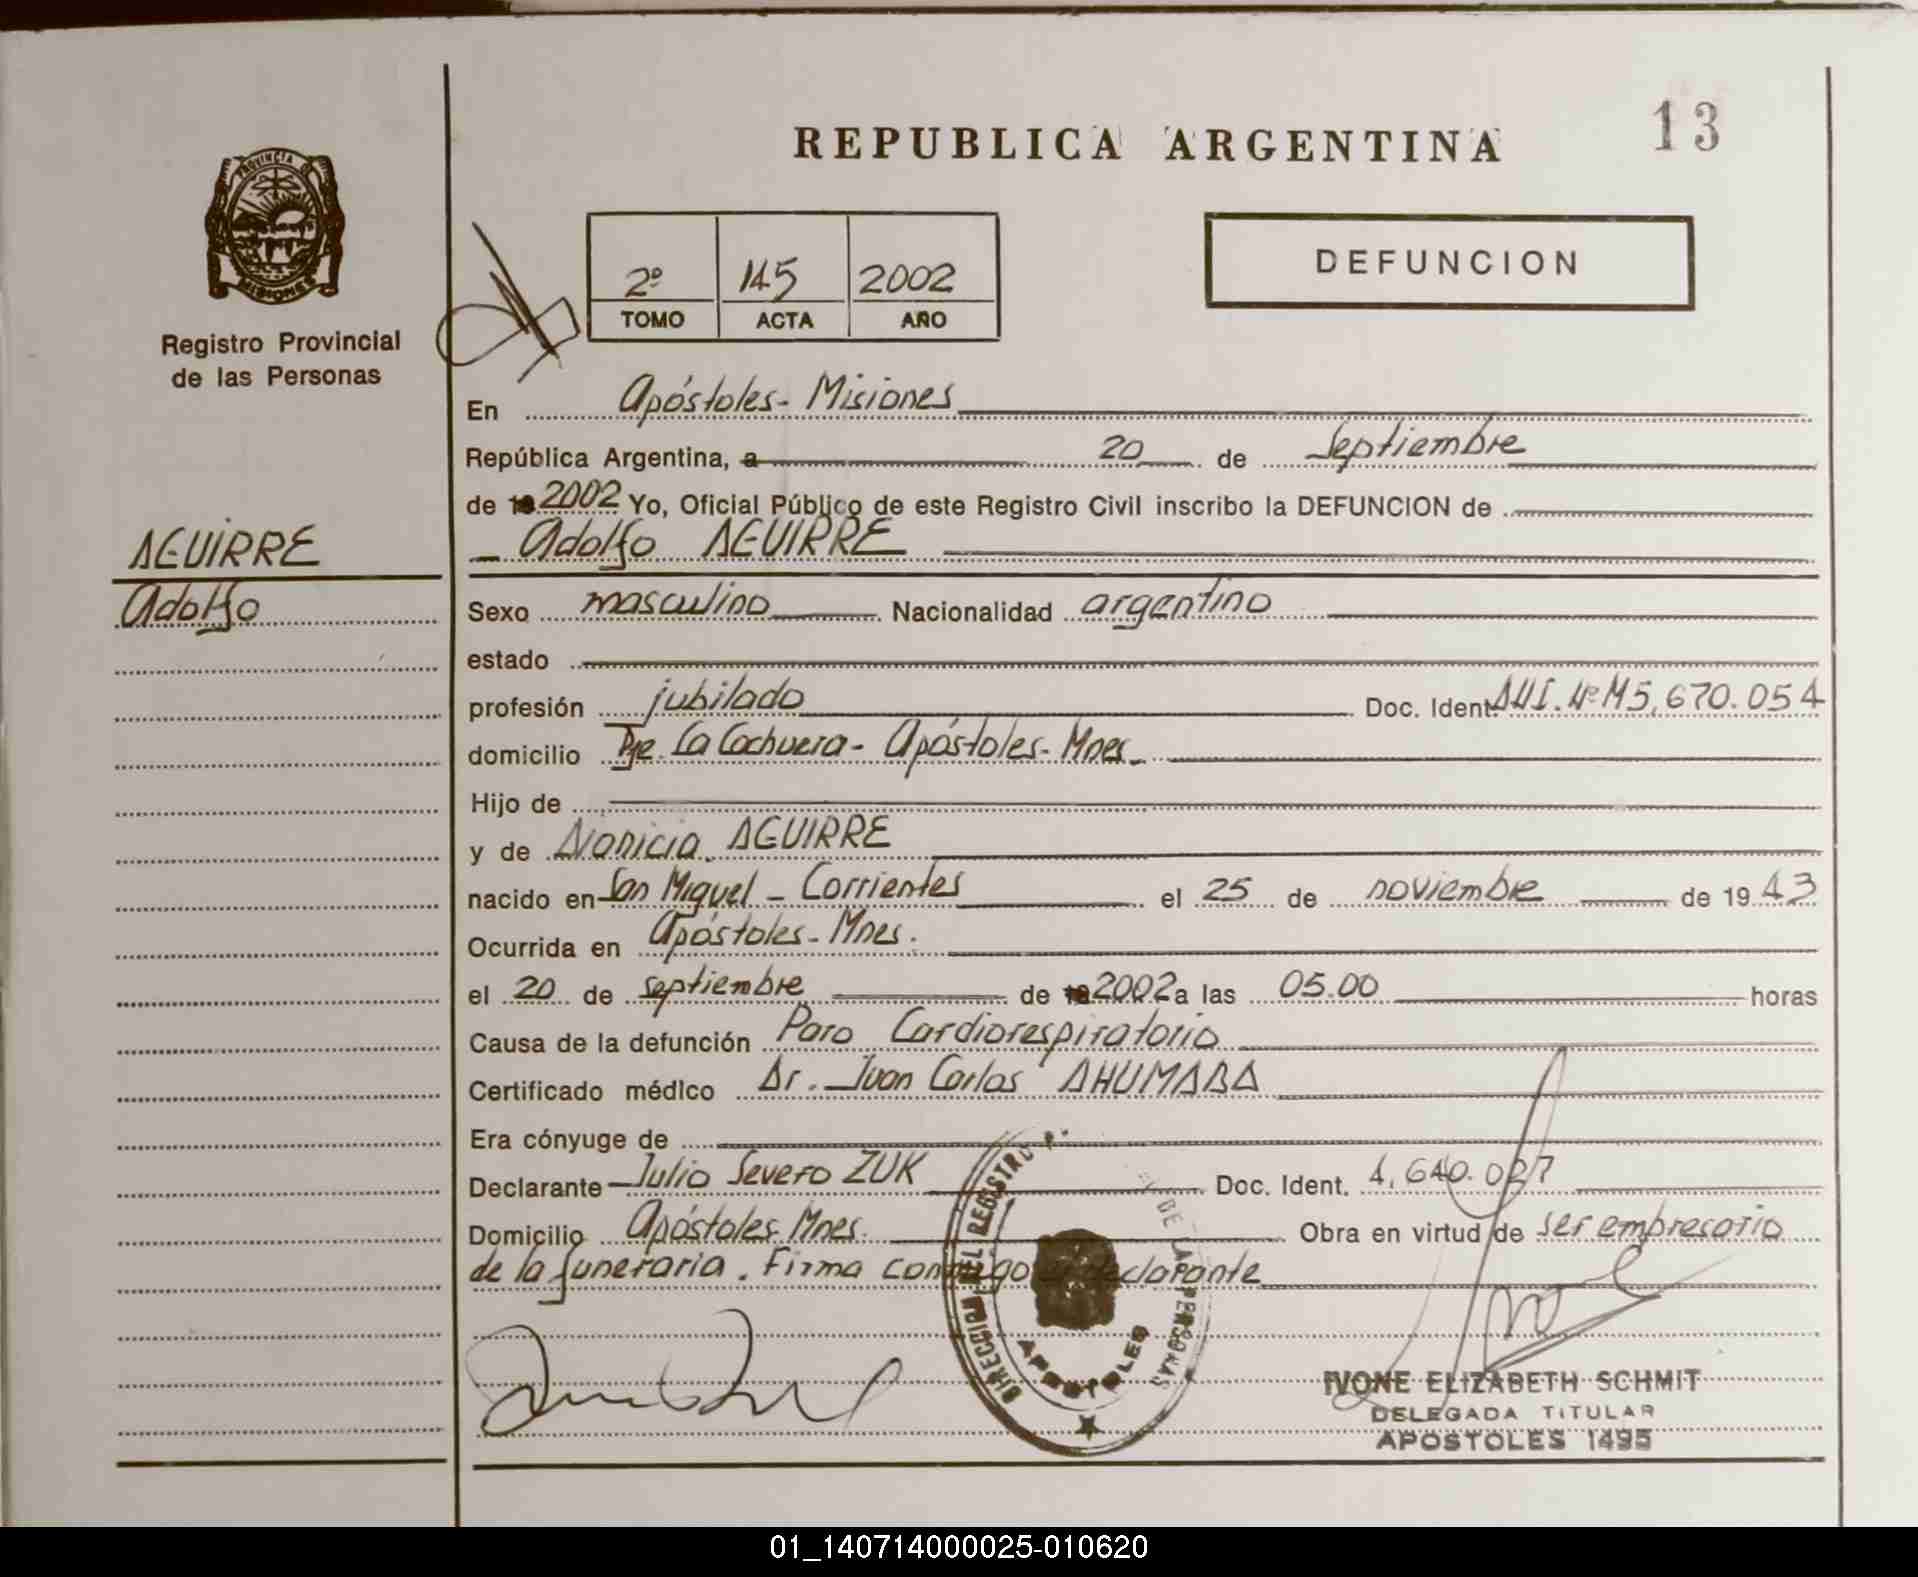 REPUBLICA ARGENTINA
13
PROVINCIA D
MISIONES
Registro Provincial
de las Personas
2º 145 2002
TOMO ACTA AÑO
DEFUNCION
En Apóstoles - Misiones
República Argentina, a 20 de Septiembre
de 19 2002 Yo, Oficial Público de este Registro Civil inscribo la DEFUNCION de
Adolfo AGUIRRE
AGUIRRE
Adolfo
Sexo masculino Nacionalidad argentino
estado
profesión jubilado Doc. Ident. DNI. Nº M5,670.054
domicilio Pje. La Cachuera - Apóstoles - Mnes.
Hijo de
y de Nonicia AGUIRRE
nacido en San Miguel - Corrientes el 25 de noviembre de 19 43
Ocurrida en Apóstoles - Mnes.
el 20 de septiembre de 19 2002 a las 05.00 horas
Causa de la defunción Paro Cardiorespiratorio
Certificado médico Dr. Juan Carlos AHUMADA
Era cónyuge de
Declarante Julio Severo ZUK Doc. Ident. 4,640.027
Domicilio Apóstoles Mnes. Obra en virtud de ser empresario
de la funeraria. Firma conmigo el declarante
DIRECCION DEL REGISTRO P. DE LAS PERSONAS
APOSTOLES
IVONE ELIZABETH SCHMIT
DELEGADA TITULAR
APOSTOLES 1495
01_140714000025-010620